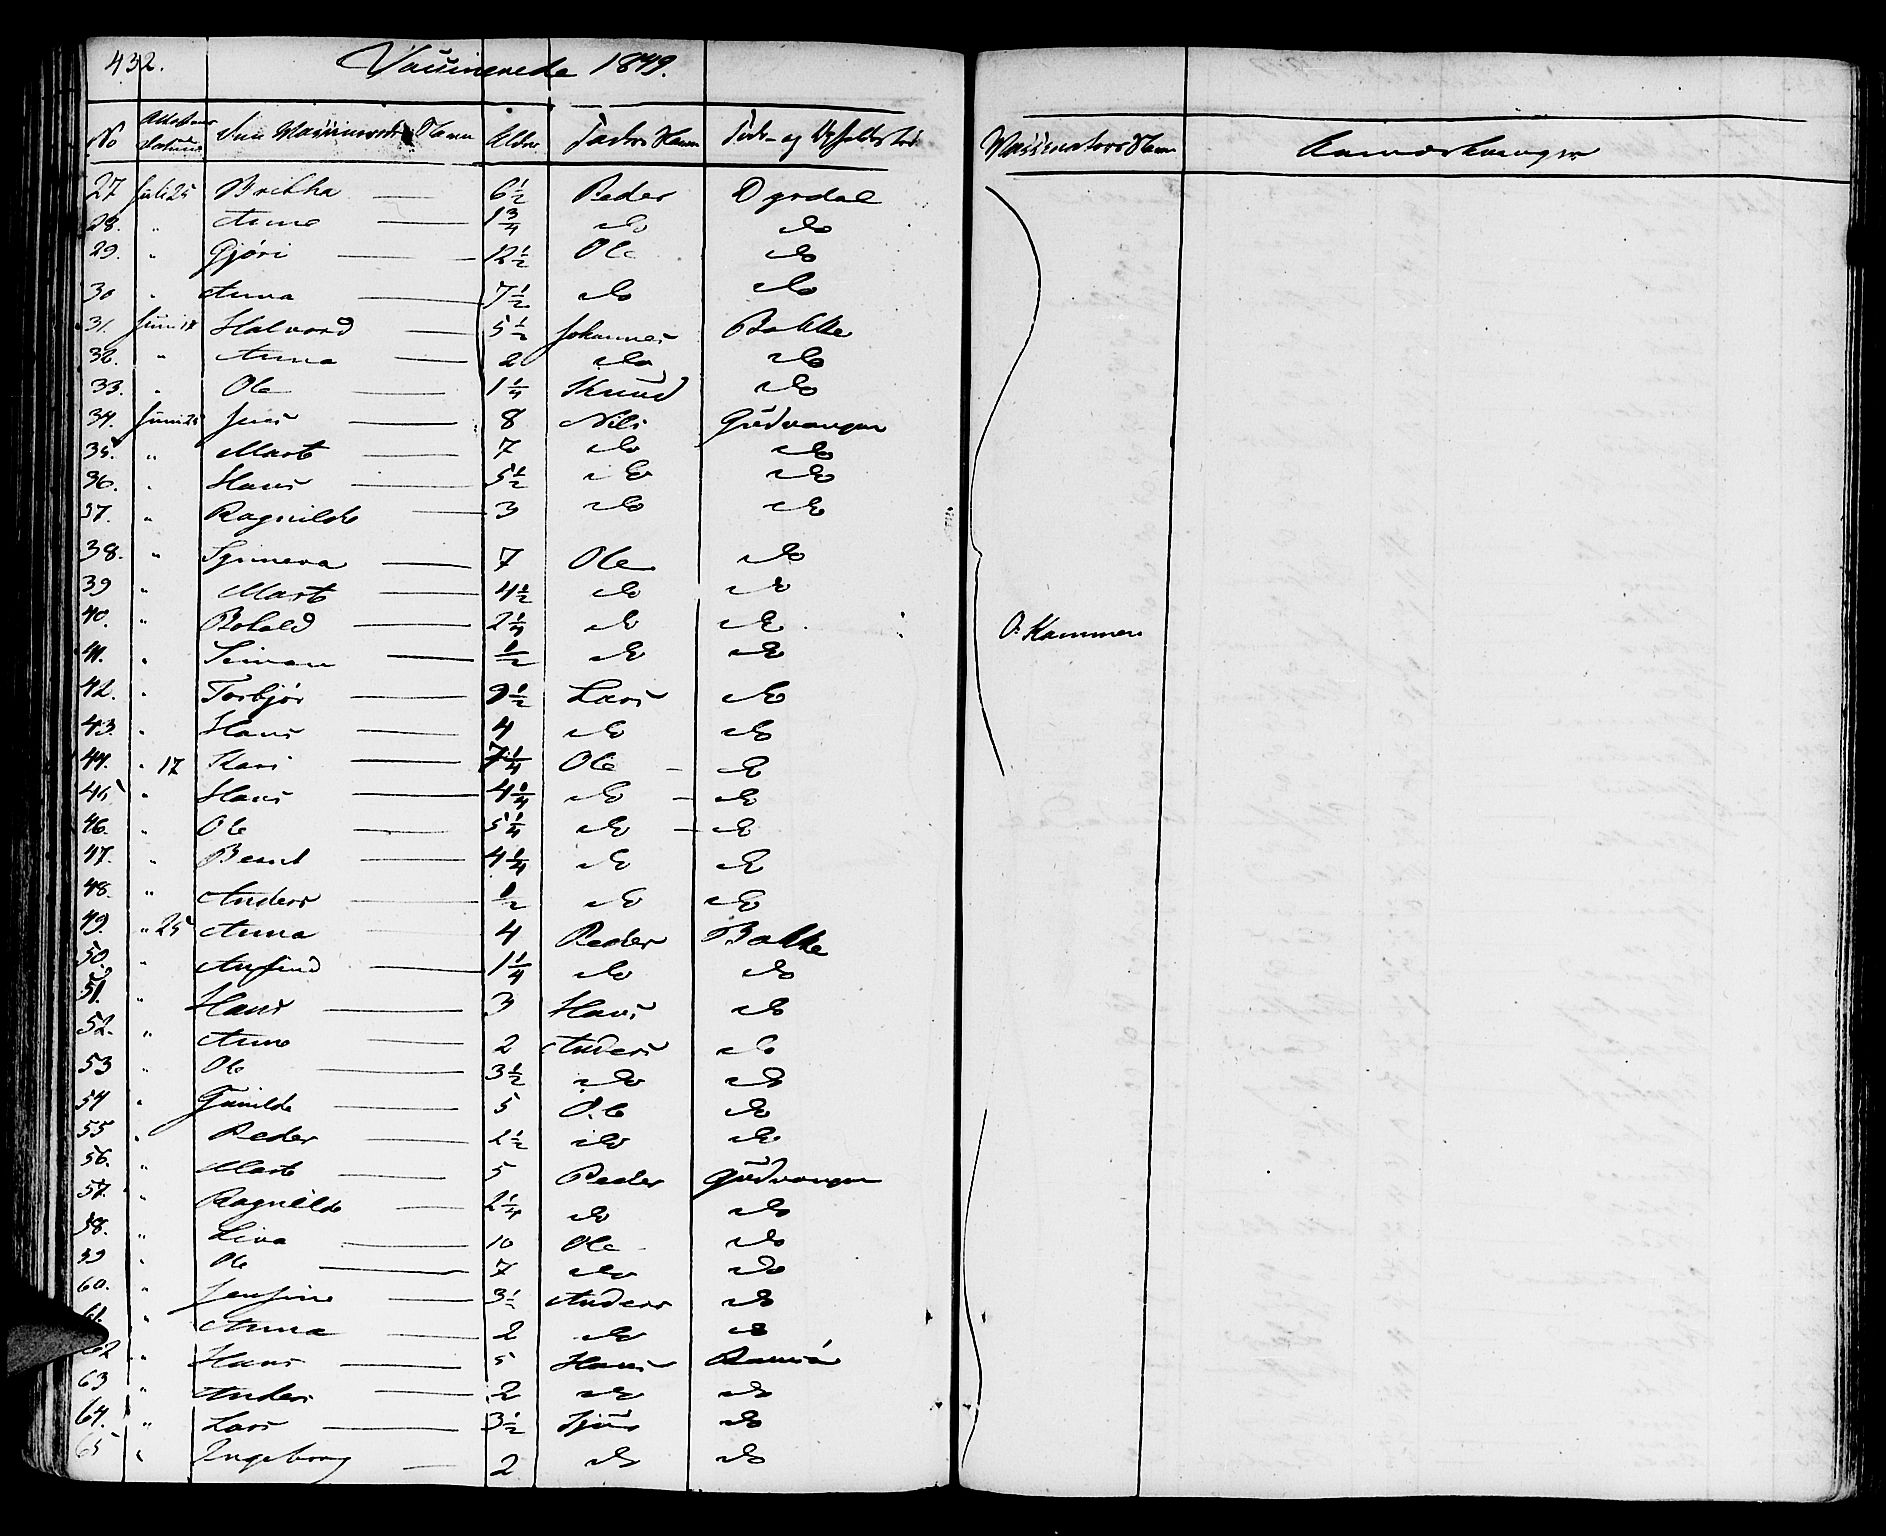 432. Vaccinerede 1849.
No Attestens Datum Den Vaccineredes Navn Alder Faders Navn Føde- og Opholds Sted Vaccinateurs Navn Anmærkninger
27 Juli 25 Brittha 6 1/2 Peder Dyrdal
28. " Anne 1 3/4 do do
29. " Gjøri 12 1/2 Ole do
30 " Anna 7 1/2 do do
31. Juni 18 Halvord 5 1/2 Johannes Bakke
32. " Anna 2 do do
33. " Ole 1 1/4 Knud do
34. Juni 25 Jens 8 Nils Gudvangen
35. " Marte 7 do do
36. " Hans 5 1/2 do do
37. " Ragnilde 3 do do
38. " Synneva 7 Ole do
39 " Marte 4 1/2 do do
40. " Botold 2 1/4 do do O. Kammen
41. " Simon 1/2 do do
42. " Torbjør 9 1/2 Lars do
43. " Hans 4 do do
44. " 17 Kari 7 1/4 Ole do
45 " Hans 4 1/4 do do
46. " Ole 5 1/4 do do
47. " Bernt 4 1/4 do do
48. " Anders 1/2 do do
49. " 25 Anna 4 Peder Bakke
50. " Anfind 1 1/4 do do
51. " Hans 3 Hans do
52. " Anne 2 Anders do
53 " Ole 3 1/2 do do
54 " Gunilde 5 Ole do
55 " Peder 2 1/2 do do
56. " Marte 5 Peder Gudvangen
57. " Ragnilde 2 1/4 do do
58. " Liva 10 Ole do
59 " Ole 7 do do
60. " Jensine 3 1/2 Anders do
61. " Anna 2 do do
62 " Hans 5 Hans Ramsø
63 " Anders 2 do do
64. " Lars 3 1/2 Sjur do
65 " Ingeborg 2 do do